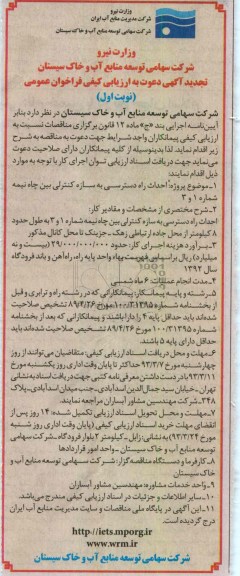 وزارت نیرو
شرکت مدیریت منابع آب ایران
شرکت سهامی توسعه منابع آب و خاک سیستان
وزارت نیرو
شرکت سهامی توسعه منابع آب و خاک سیستان
تجدید آگهی دعوت به ارزیابی کیفی فراخوان عمومی
(نوبت اول)
شرکت سهامی توسعه منابع آب و خاک سیستان در نظر دارد بنابر
آیین‌نامه اجرایی بند «ج» ماده ۱۲ قانون برگزاری مناقصات نسبت به
ارزیابی کیفی پیمانکاران واجد شرایط جهت دعوت به مناقصه به شرح
زیر اقدام نماید. لذا بدینوسیله از کلیه پیمانکاران دارای صلاحیت دعوت
می‌نماید جهت دریافت اسناد ارزیابی توان اجرای کار با توجه به موارد
ذیل اقدام نمایند:
۱-موضوع پروژه: احداث راه دسترسی به سازه کنترلی بین چاه نیمه
شماره ۱ و ۳
۲-شرح مختصری از مشخصات و مقادیر کار:
احداث راه دسترسی به سازه کنترلی بین چاه نیمه شماره ۱ و ۳ به طول حدود
۸ کیلومتر از محل جاده ارتباطی زهک-جزینک تا محل کانال مذکور
۳-برآورد هزینه اجرای کار: حدود ۲۹/۰۰۰/۰۰۰/۰۰۰ (بیست و نه
میلیارد) ریال براساس فهرست بهاء واحد پایه راه، راه‌آهن و باند فرودگاه
سال ۱۳۹۲
۴-مدت انجام عملیات: ۶ ماه شمسی
۵-رشته و پایه پیمانکار: پیمانکارانی که در رشته راه و ترابری و قبل
از بخشنامه شماره ۱۰۰/۳۱۳۹۵ مورخ ۸۹/۴/۲۶ تشخیص صلاحیت
شده‌اند باید حداقل پایه ۴ را دارا باشند و پیمانکارانی که بعد از بخشنامه
شماره ۱۰۰/۳۱۳۹۵ مورخ ۸۹/۴/۲۶ تشخیص صلاحیت شده‌اند باید
حداقل دارای پایه ۵ باشند.
۶-مهلت و محل دریافت اسناد ارزیابی کیفی: متقاضیان می‌توانند از روز
چهارشنبه مورخ ۹۳/۳/۷ حداکثر تا پایان وقت اداری روز یکشنبه مورخ
۹۳/۳/۱۱ با در دست داشتن معرفی‌نامه کتبی جهت دریافت اسناد به نشانی
تهران-خیابان سید جمال‌الدین اسدآبادی-جنب میدان اسدآبادی-پلاک
۳۴۸-مهندسین مشاور آبساران مراجعه نمایند.
۷-مهلت و محل تحویل اسناد ارزیابی تکمیل شده: ۱۴ روز پس از
انقضای مهلت خرید اسناد ارزیابی کیفی (پایان وقت اداری روز شنبه
مورخ ۹۳/۳/۲۴) به نشانی: زابل-کیلومتر ۲ بلوار فرودگاه-شرکت سهامی
توسعه منابع آب و خاک سیستان-واحد امور قراردادها
۸-کارفرما و دستگاه مناقصه‌گزار: شرکت سهامی توسعه منابع آب و
خاک سیستان
۹-واحد خدمات مشاوره: مهندسین مشاور آبساران
۱۰-سایر اطلاعات و جزئیات در اسناد ارزیابی کیفی مندرج می‌باشد.
۱۱-این آگهی در پایگاه ملی مناقصات و سایت مدیریت منابع آب ایران
درج گردیده است.
http://iets.mporg.ir
www.wrm.ir
شرکت سهامی توسعه منابع آب و خاک سیستان